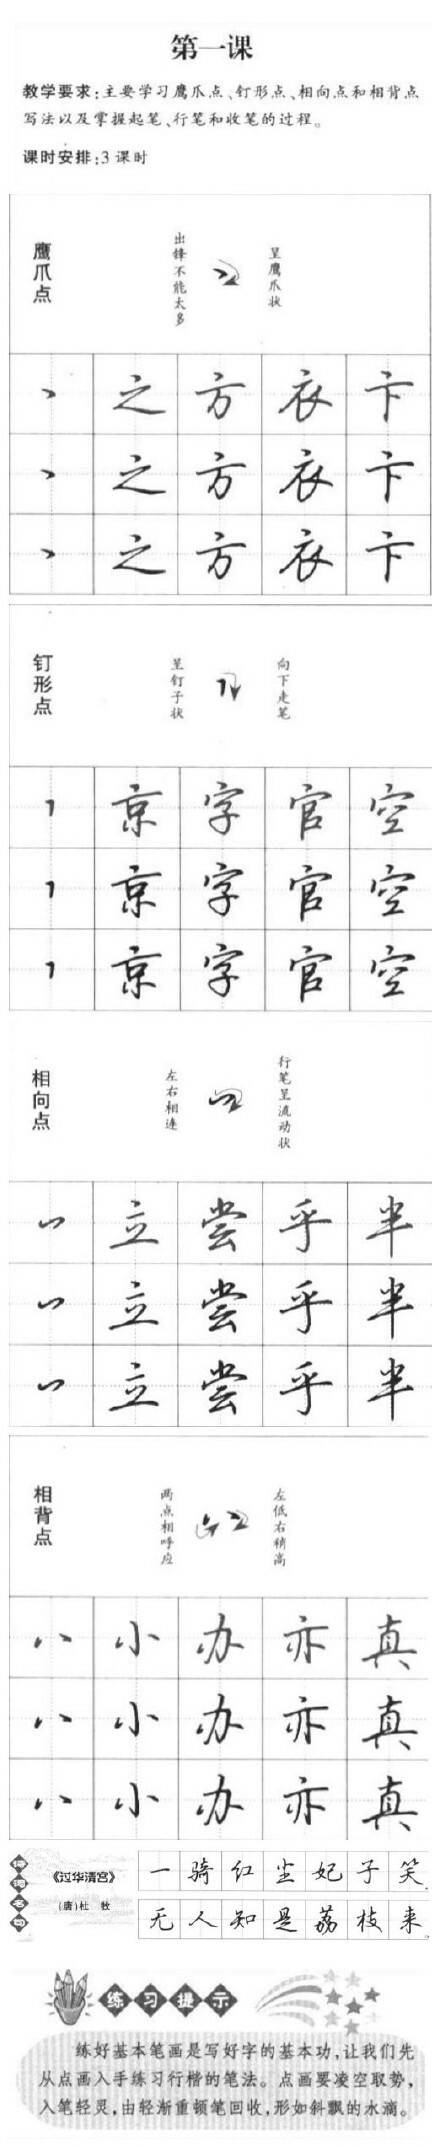 第一课
教学要求:主要学习鹰爪点、钉形点、相向点和相背点
写法以及掌握起笔、行笔和收笔的过程。
课时安排:3 课时
鹰爪点
出锋不能太多
呈鹰爪状
丶 之 方 衣 卞
丶 之 方 衣 卞
丶 之 方 衣 卞
钉形点
呈钉子状
向下走笔
京 字 官 空
京 字 官 空
京 字 官 空
相向点
左右相连
行笔呈流动状
立 尝 乎 半
立 尝 乎 半
立 尝 乎 半
相背点
两点相呼应
左低右稍高
八 小 办 亦 真
八 小 办 亦 真
八 小 办 亦 真
诗词名句
《过华清宫》
(唐)杜 牧
一骑红尘妃子笑,
无人知是荔枝来。
练习提示
练好基本笔画是写好字的基本功,让我们先
从点画入手练习行楷的笔法。点画要凌空取势,
入笔轻灵,由轻渐重顿笔回收,形如斜飘的水滴。